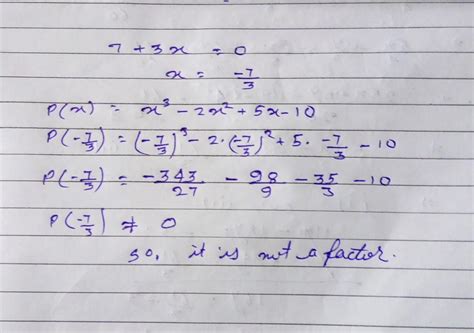 7 + 3x = 0
x = -7/3
p(x) = x³ - 2x² + 5x - 10
P(-7/3) = (-7/3)³ - 2·(-7/3)² + 5· -7/3 - 10
P(-7/3) = -343/27 - 98/9 - 35/3 - 10
P(-7/3) ≠ 0
so, it is not a factor.